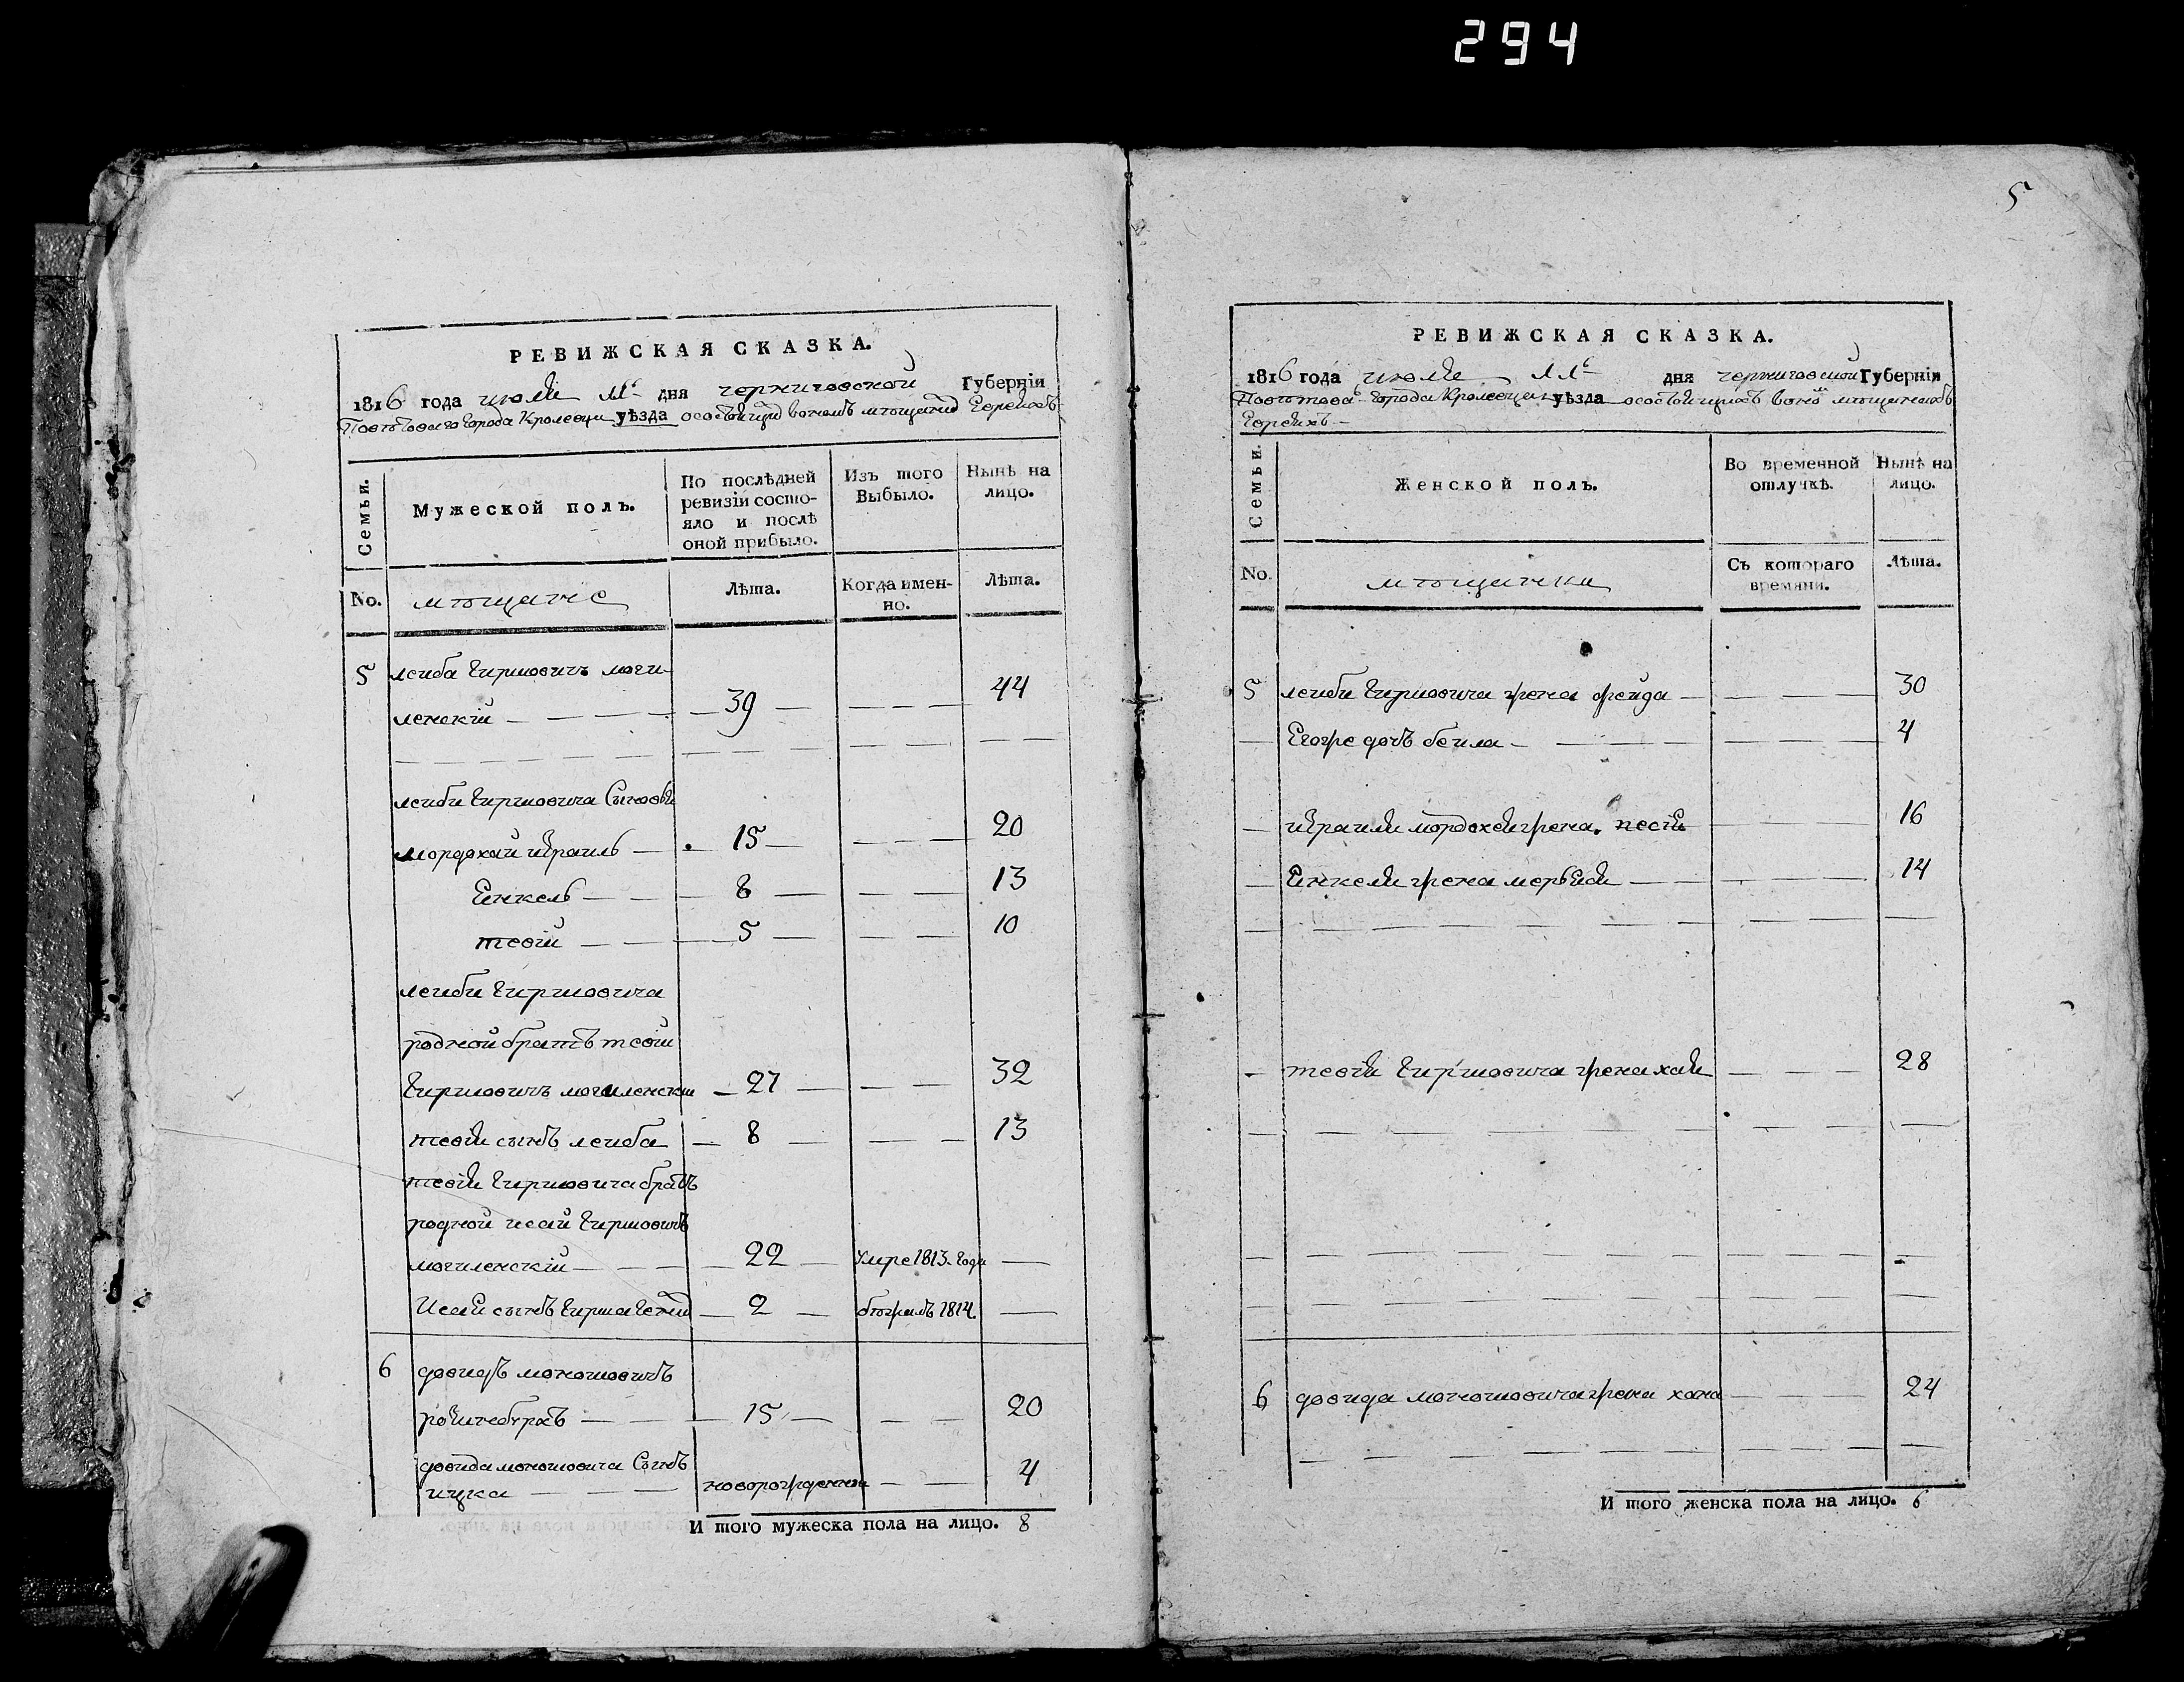 294
РЕВИЖСКАЯ СКАЗКА.
1816 года июля дня черниговской Губернiи
Поветоваго города Кролевца уѣзда о состоящих в оном мѣщанъ Евреяхъ
Семьи.
Мужеской полъ.
По послѣдней ревизiи состояло и послѣ оной прибыло.
Изъ того Выбыло.
Нынѣ на лицо.
No.
мѣщане
Лѣта.
Когда именно.
Лѣта.
5 лейба гиршовичъ моги-
ленскiй — 39 — 44
лейби гиршовича Сыновья
мордохай израиль — 15 — 20
Еннкель — 8 — 13
тевiй — 5 — 10
лейби гиршовича
родной братъ тевiй
гиршовичъ могиленскiй — 27 — 32
тевiя сынъ лейба — 8 — 13
тевiя гиршовича братъ
родной исай гиршовичъ
могиленскiй — 22 — Умре 1813. года —
Исая сынъ гирша — 2 — бѣжалъ 1814. —
6 довидъ моношовичъ
— 15 — 20
довида моношовича Сынъ
ицка — новорожденны — 4
И того мужеска пола на лицо. 8
5
РЕВИЖСКАЯ СКАЗКА.
1816 года июля дня черниговской Губернiи
Поветоваго города Кролевца уѣзда о состоящихъ в оной мѣщанкахъ
Евреяхъ —
Семьи.
Женской полъ.
Во временной отлучкѣ.
Нынѣ на лицо.
No.
мѣщанки
Съ котораго времяни.
Лѣта.
5 лейби гиршовича жена фрейда — 30
Егоже дочь бейла — 4
— израиля мордохея жена песiя — 16
— Еннкеля жена — 14
— тевiя гиршовича жена хая — 28
6 довида моношовича жена хана — 24
И того женска пола на лицо. 6